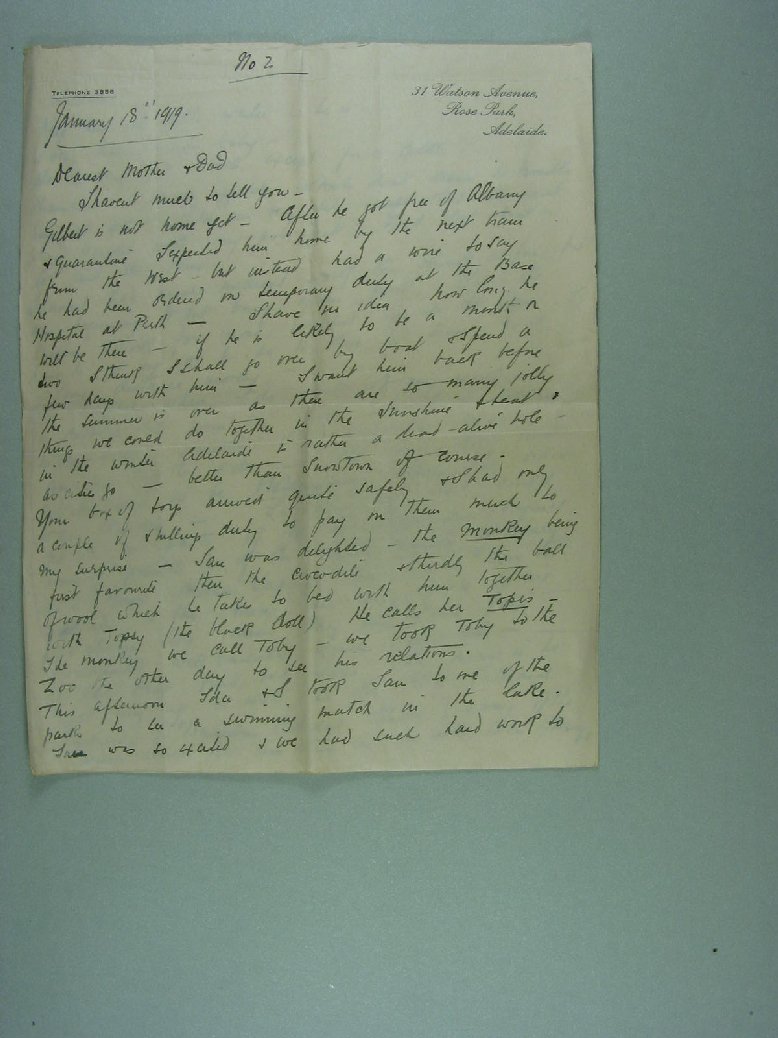 No 2
TELEPHONE 3886
31 Watson Avenue,
Rose Park,
Adelaide.
January 18th 1919.
Dearest Mother & Dad
I havent much to tell you –
Gilbert is not home yet – After he got free of Albany
& quarantine I expected him home by the next train
from the West – but instead had a wire to say
he had been ordered on temporary duty at the Base
Hospital at Perth – I have no idea how long he
will be there – if he is likely to be a month or
two I think I shall go over by boat & spend a
few days with him – I want him back before
the summer is over as there are so many jolly
things we could do together in the sunshine & heat,
in the winter Adelaide is rather a dead-alive hole –
as cities go – better than Snowtown of course.
Your box of toys arrived quite safely & I had only
a couple of shillings duty to pay on them much to
my surprise – Ian was delighted – the monkey being
first favourite then the crocodile & thirdly the ball
of wool which he takes to bed with him together
with Topsy (the black doll) He calls her Topis –
The monkey we call Toby – we took Toby to the
Zoo the other day to see his relations.
This afternoon Ida & I took Ian to one of the
parks to see a swimming match in the lake.
Ian was so excited & we had such hard work to